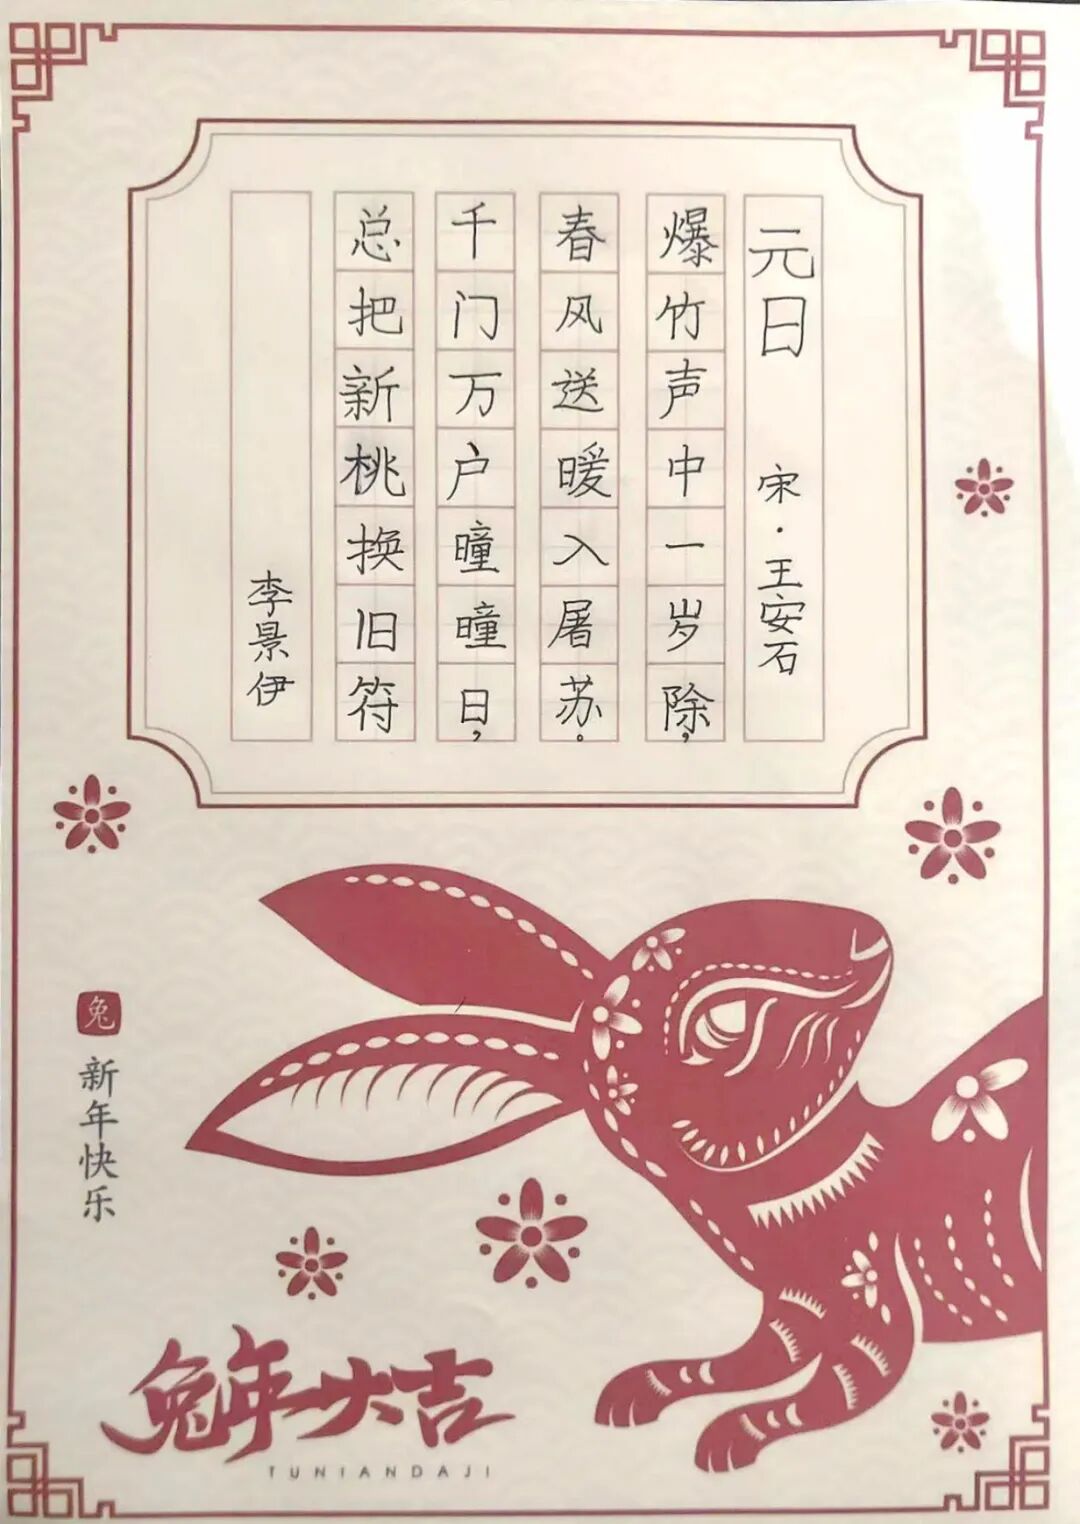 元日 宋·王安石
爆竹声中一岁除，
春风送暖入屠苏。
千门万户曈曈日，
总把新桃换旧符
李景伊
兔
新年快乐
兔年大吉
TUNIANDAJI